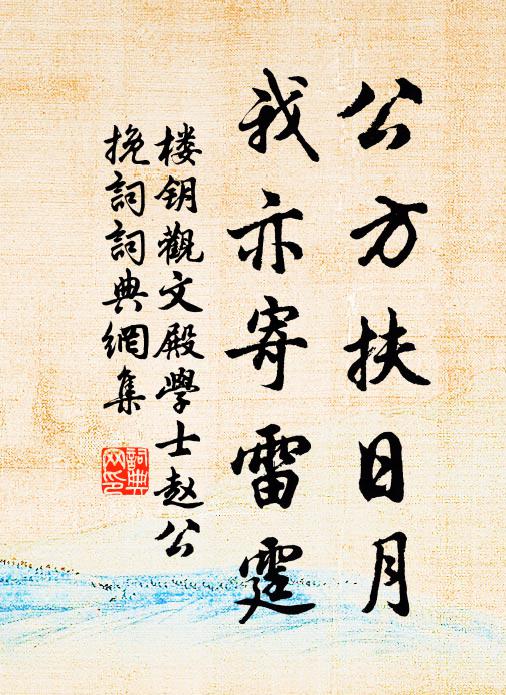 公方扶日月
我亦寄雷霆
楼钥觀文殿學士赵公
挽詞詞典網集
詞典网印